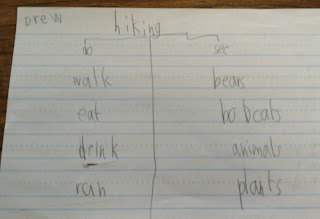 Drew
hiking
do see
walk bears
eat bobcats
drink animals
ran plants